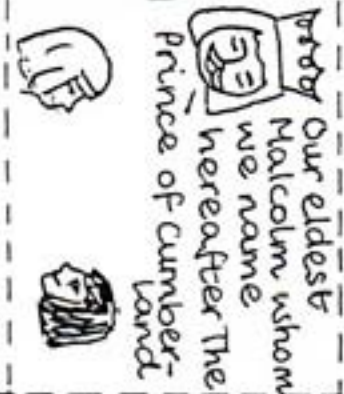 Our eldest
Malcolm whom
we name
hereafter The
Prince of Cumber-
land